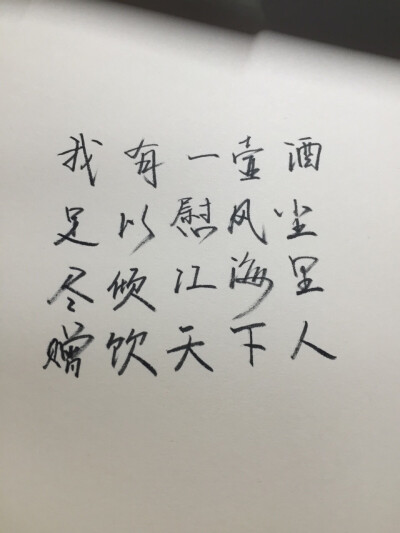 我有一壶酒
足以慰风尘
尽倾江海里
赠饮天下人